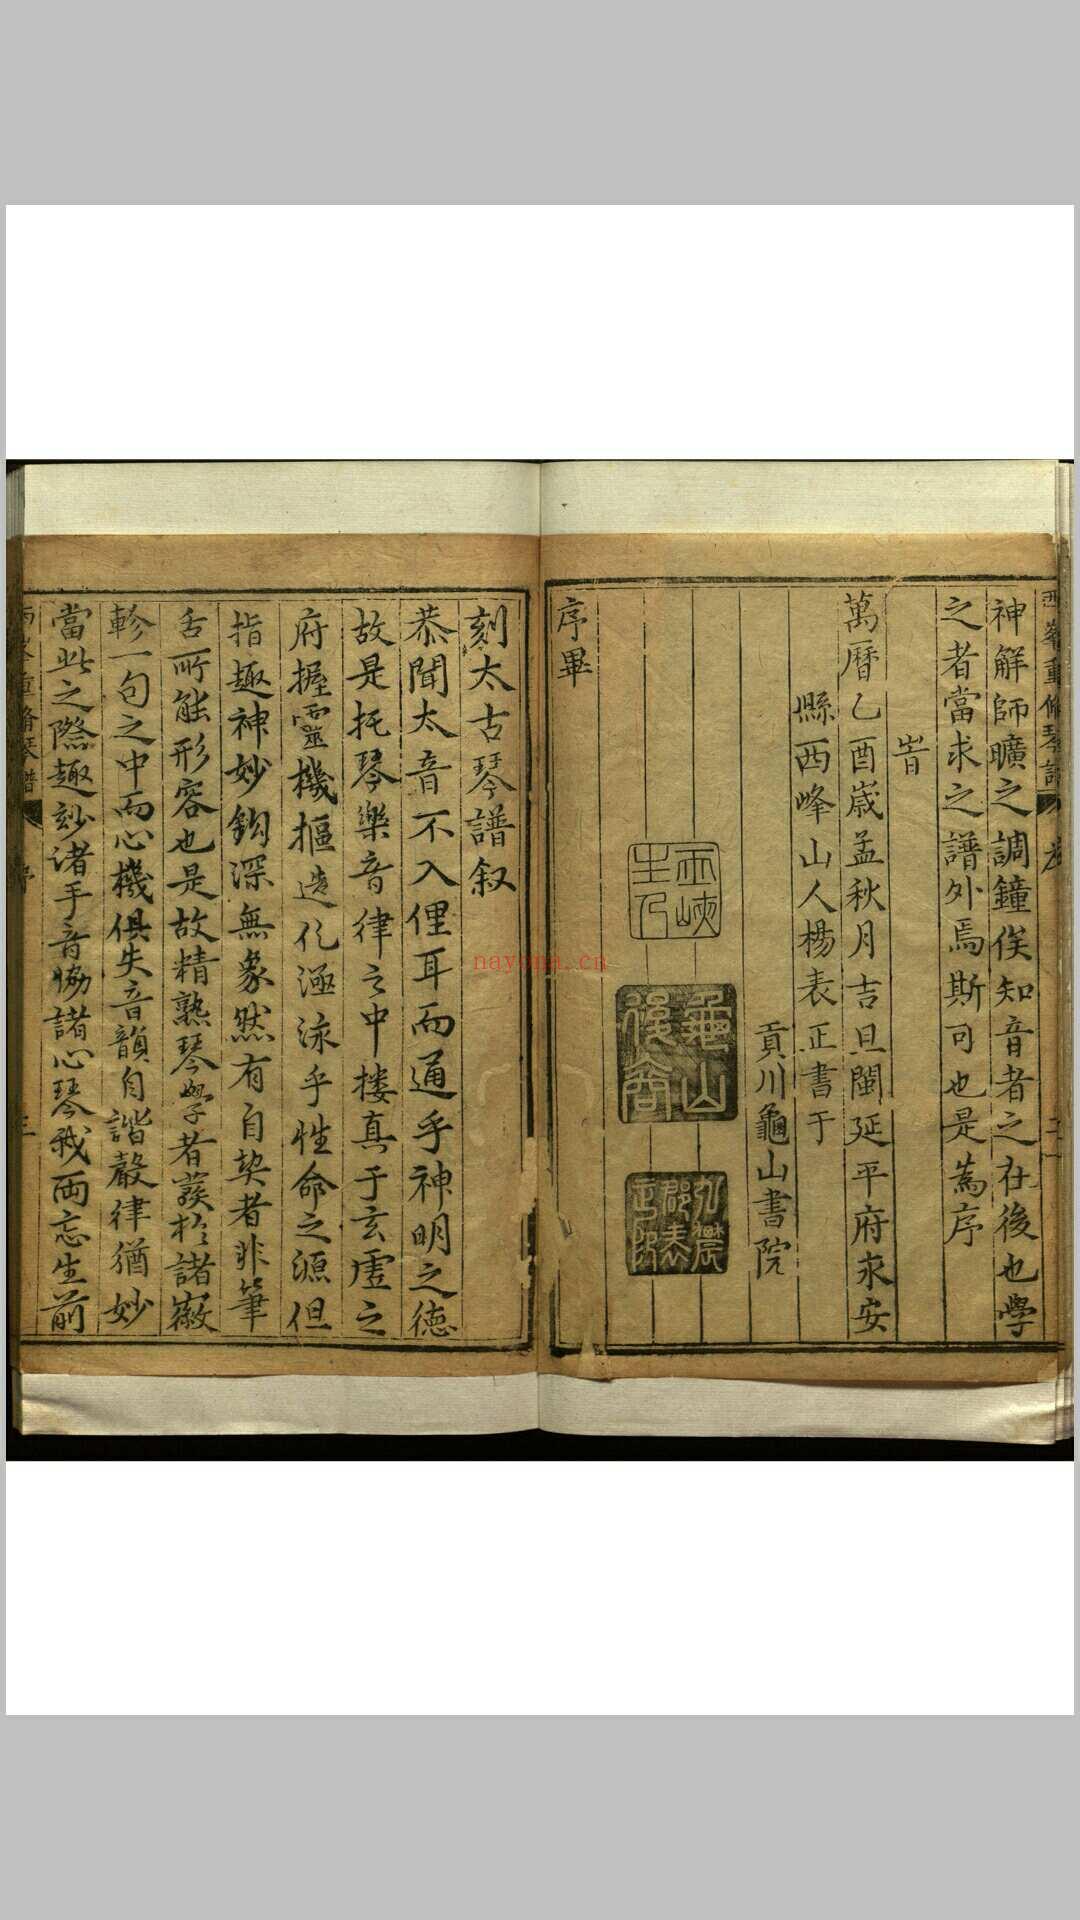 神解師曠之調鐘俟知音者之在後也學
之者當求之譜外焉斯可也是為序
旹
萬曆乙酉歲孟秋月吉旦閩延平府永安
縣西峰山人楊表正書于
貢川龜山書院
序畢
刻太古琴譜叙
恭聞太音不入俚耳而通乎神明之德
故是托琴樂音律之中棲真于玄虛之
府握靈機摳造化極泳乎性命之源但
指趣神妙鈎深無象然有自契者非筆
舌所能形容也是故精熟琴學者蔟於諸徽
軫一句之中而心機俱失音韻自諧聲律猶妙
當此之際趣妙諸手音協諸心琴我両忘生前
nayona.cn